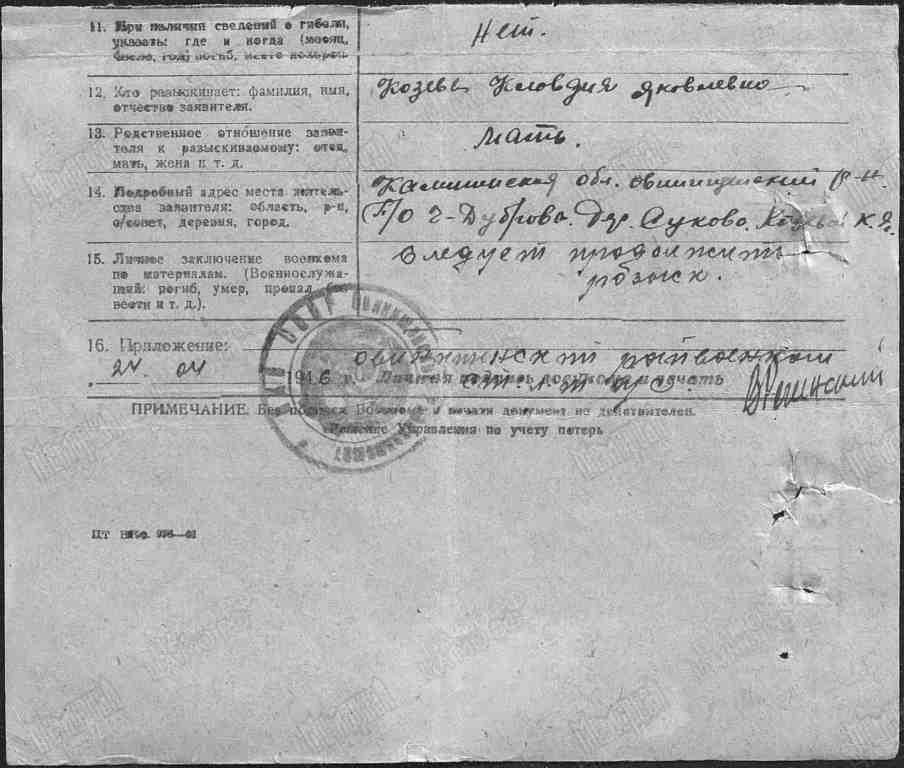 11. При наличии сведений о гибели,
указать: где и когда (месяц,
число, год) погиб, место похорон.
Нет.
12. Кто разыскивает: фамилия, имя,
отчество заявителя.
Козева Кловдия Яковлевна
13. Родственное отношение заяви-
теля к разыскиваемому: отец,
мать, жена и т. д.
Мать.
14. Подробный адрес места житель-
ства заявителя: область, р-н,
с/совет, деревня, город.
Калининская обл. Овинищенский р-н.
П/О 2-Дуброва. Дер. Суково. К. Я.
15. Личное заключение военкома
по материалам. (Военнослужа-
щий: погиб, умер, пропал без
вести и т. д.).
Следует продолжить
розыск.
16. Приложение:
Овинищенский райвоенком
24. 04 1946 г. Личная подпись военкома и печать
ПРИМЕЧАНИЕ. Без подписи Военкома и печати документ не действителен.
Решение Управления по учету потерь
СССР